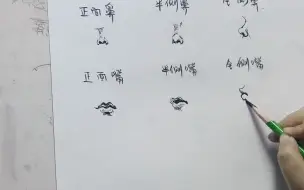 正面鼻 半侧鼻 全侧鼻
正面嘴 半侧嘴 全侧嘴